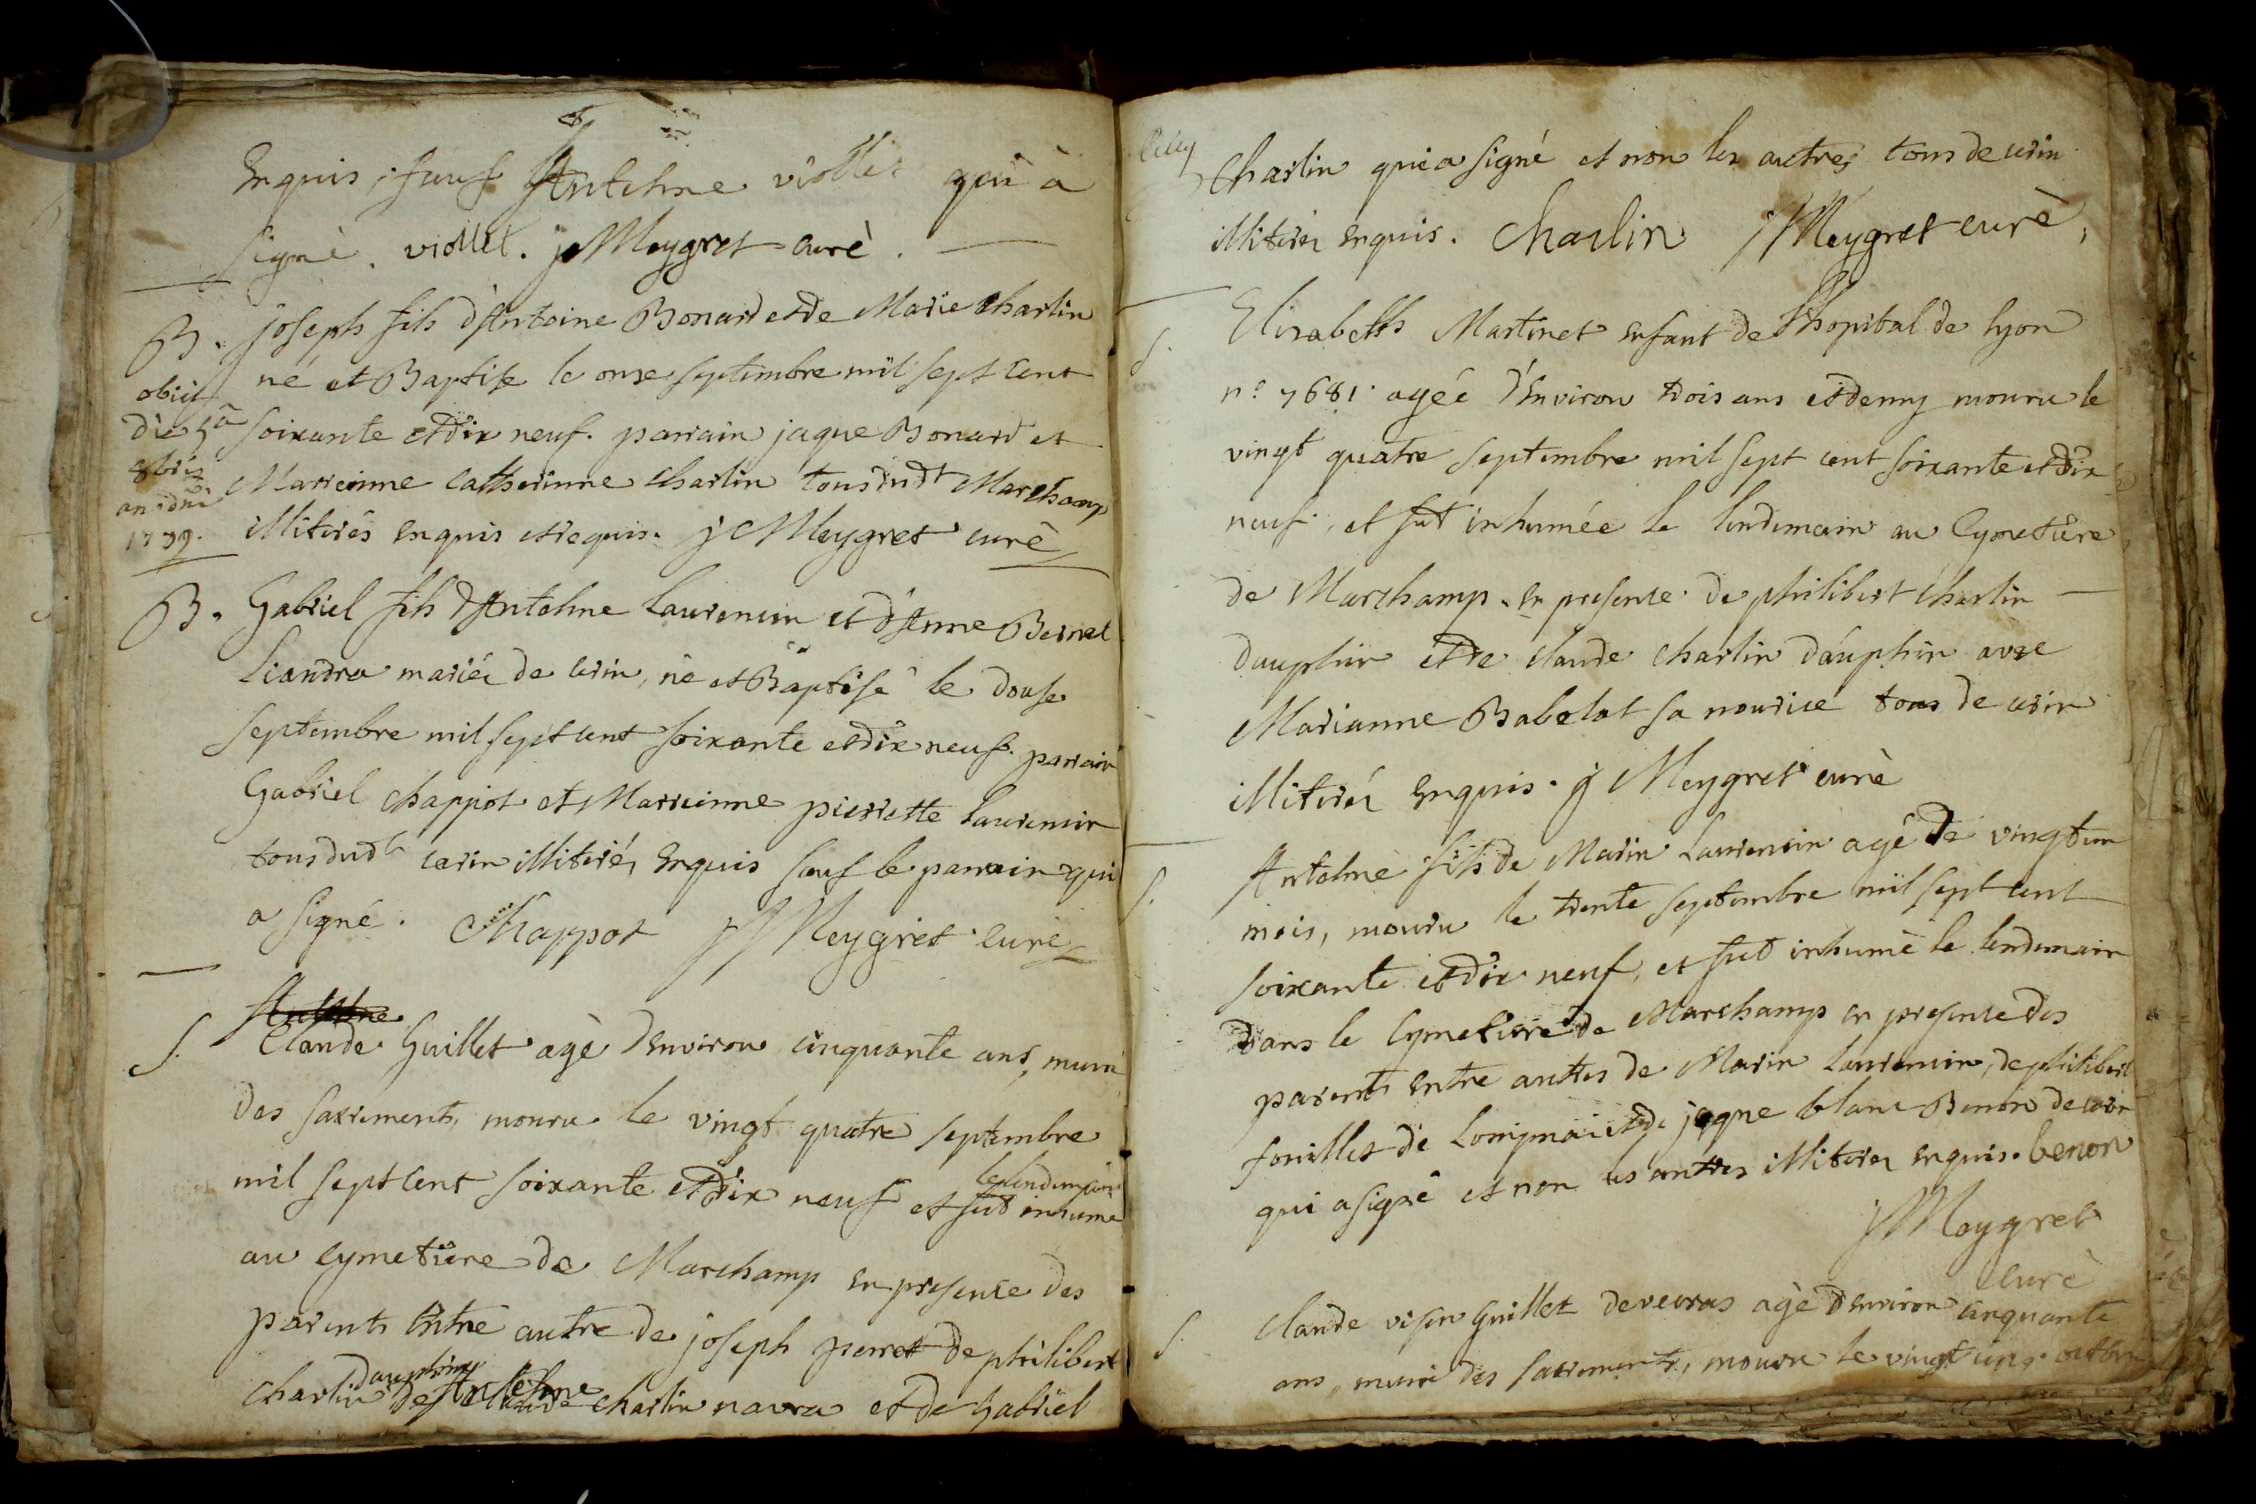 Enquis, sauf Antelme viollet qui à
signè. viollet. j Meygret curè.
B. joseph fils d'Antoine Bonard et de Marie Charlin
né et Baptisé le onze septembre mil sept cent
soixante et dix neuf. parrain jaque Bonard et
Marrienne Catherinne Charlin tous dudt Marchamp
illitirés enquis et requis. j Meygret curè
obiit
die
8bris
an. dni
1779.
B. Gabriel fils d'Antelme Laurencin et d'Anne Bernel
Liandra mariés de cerin, né et Baptisé le douse
septembre mil sept cent soixante et dix neuf. parrain
Gabriel chappot et Marrienne pierrette Laurencin
tous dudt cerin illitirés enquis sauf le parrain qui
a signé. Chappot j Meygret curè
S. Claude Guillet agè d'Environ cinquante ans, muni
des sacrements, mouru le vingt quatre septembre
le lendemain
mil sept cent soixante et dix neuf et fut inhumé
au cymetiere de Marchamp en presence des
parents Entre autre de joseph perret de philibert
dauphin
charlin de Antelme charlin navra et de Gabriel
Charlin qui a signé et non les autres tous de cerin
illitirés enquis. Charlin j Meygret curè,
S. Elizabeth Martinet enfant de l'hopital de lyon
n.o 7681 agée d'Environ trois ans et demy mouru le
vingt quatre septembre mil sept cent soixante et dix
neuf, et fut inhumée le lendemain au Cymetiere
de Marchamp. en presence de philibert charlin
dauphin et de claude charlin dauphin avec
Marianne Babolat sa nourice tous de cerin
illitirés enquis. j Meygret curè
S. Antelme fils de Marin Laurencin agé de vingt un
mois, mouru le trente septembre mil sept cent
soixante et dix neuf, et fut inhumè le lendemain
dans le Cymetiere de Marchamp en presence des
parents entre autres de Marin Laurencin, de philibert
fouillet de et de jaque blanc Benon de cerin
qui a signé et non les autres illitirés enquis. benon
j Meygret
curè
S. Claude Guillet agè d'environ cinquante
ans, muni des sacrements, mouru le vingt